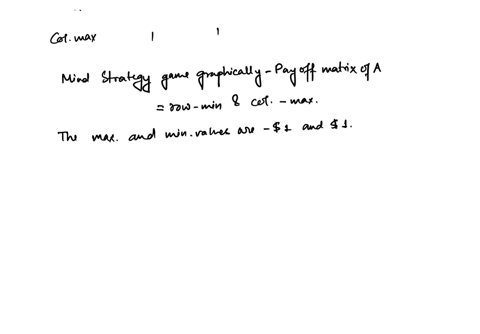 Col. max 1 1
Mind Strategy game graphically - Pay off matrix of A
= row-min & col. - max.
The max. and min. values are -$1 and $1.